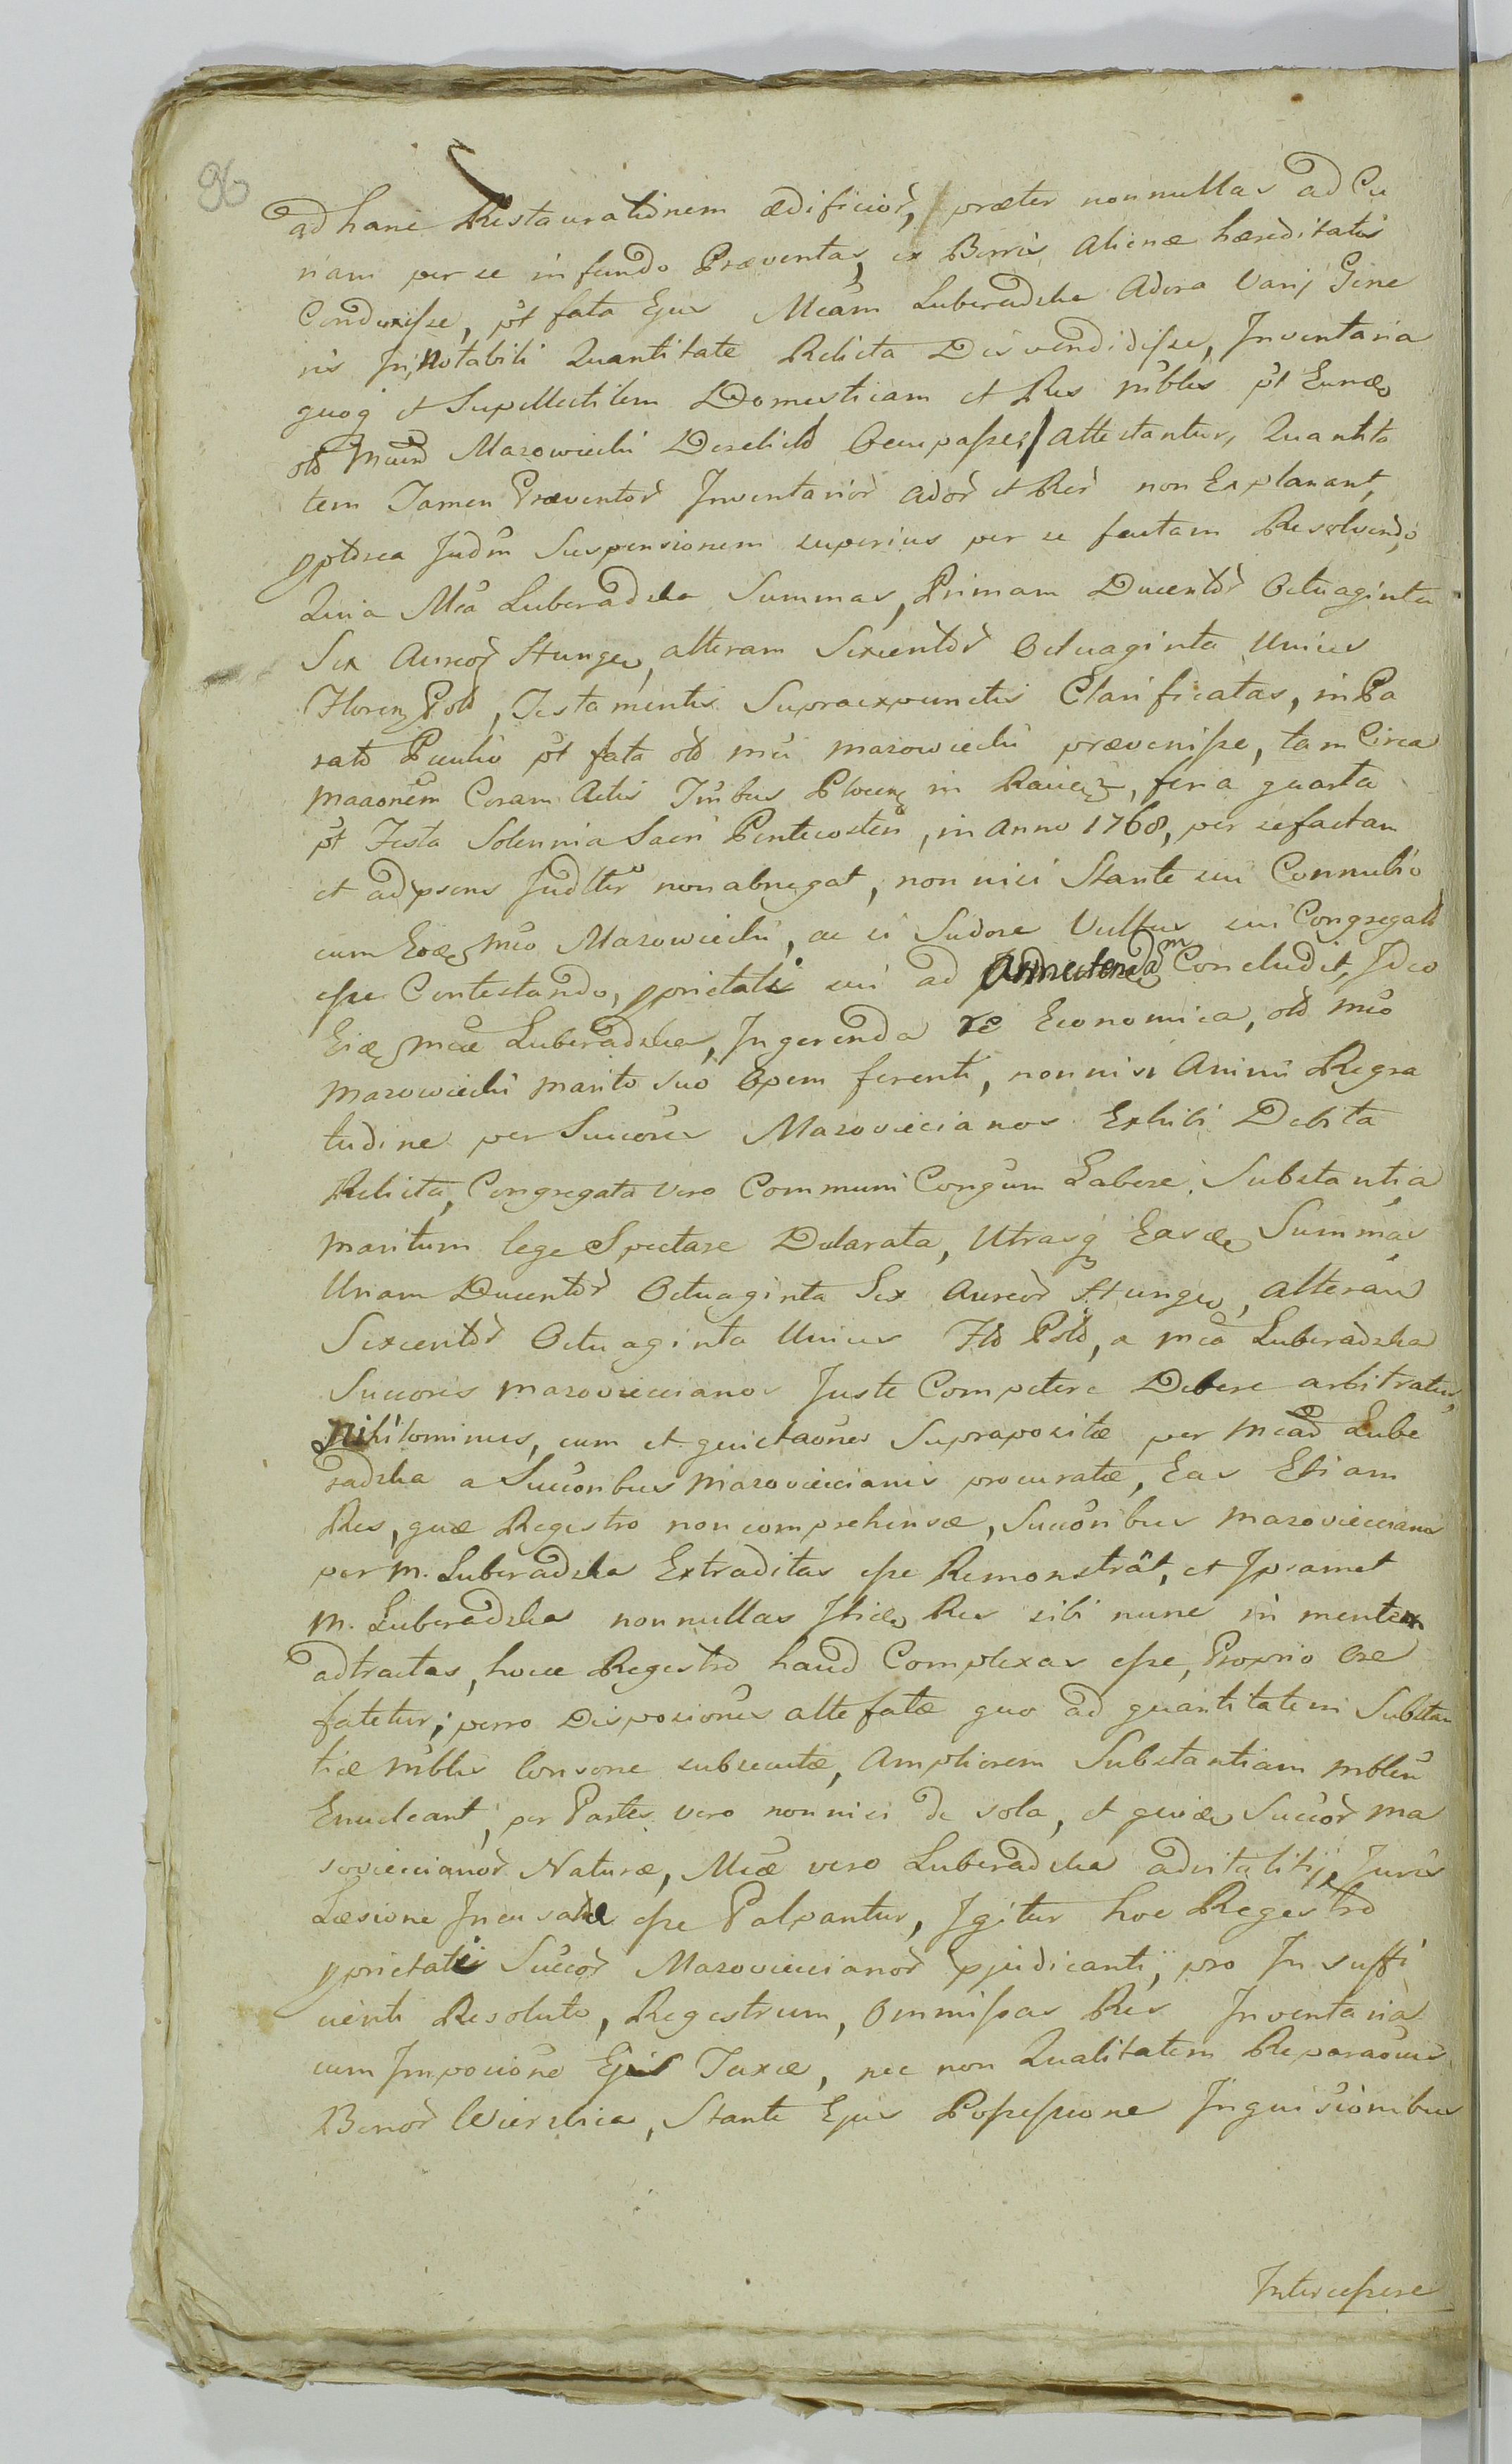 96
ad hanc Restaurationem ædificior, præter nonnullas ad Cu
riam per se in fundo Præventas, ex Bonis Alienæ hæreditatis
Conduxisse, pt fata Ejus Mcam Luberadzka Adora Varij Gene
ris In Notabili Quantitate Relicta Disvendidisse, Inventaria
quoq et Supellectilem Domesticam et Res mbles pt
olb Mazowiecki Derelict Occupasse, attestantur, Quantita
tem Tamen Præventor Inventarior Ador et Rer non Explanant,
pptdrea Judm Suspensionem superius per se factam Resolvendo,
Quia Mca Luberadzka Summas, Primam Ducentor Octuaginta
Sex Aureor Hunge, alteram Sexcentor Octuaginta Unius
Floren Pold, Testamentis Supraexpunctis Clarificatas, in Pa
rato Peculio pt fata olb mci mazowiecki prævenisse, tam Circa
Coram Actis Plocen in Raciąż, feria quarta
pt Festa Solennia Sacri Pentecosten, in Anno 1768, per se factam
et ad psens Judlter non abnegat, non nisi Stante sui Connubio
cum mco Mazowiecki, ac si Sudore Vultus sui Congregatt
esse Contestando, pprietati sui ad Concludit, Ideo
mcæ Luberadzka, Ingerenda re Economica, olb mco
mazowiecki marito suo Opem ferenti, non nisi Animi Regra
tudine per Succores Mazovieccianos Exhibi Debita
Relicta, Congregata vero Communi Congum Labore Substantia
maritum lege Spectare Delarata, Utrasq Easde Summas
Unam Ducentor Octuaginta Sex Aureor Hunge, alteram
Sexcentor Octuaginta Unius Flo Pold, a mca Luberadzka
Succores mazovieccianos Juste Competere Debere arbitratur,
Nihilominus, cum et quictaones Supraposite per mcad Lube
radzka a Succoribus mazovieccianis procuratæ, Eas Etiam
Res, quæ Regestro non comprehensæ, Succoribus mazovieccianis
per m. Luberadzka Extraditas esse Remonstrat, et Ipsamet
m. Luberadzka nonnullas Itide Res sibi nunc in mentem
adtractas, hocce Regestro haud Complexas esse, Proprio Ore
fatetur; porro Disposiones altefatæ quo ad quantitatem Substan
tiæ mblis Consone subsecutæ, Ampliorem Substantiam mblem
Enucleant, per Partes vero non nisi de sola, et quide Succor ma
zovieccianor Naturæ, Mcæ vero Luberadzka advitalitij Juris
Læsione Incusatæ esse Palpantur, Igitur hoc Regestro
pprietati Succor Mazovieccianor pjudicanti, pro Insuffi
cienti Resoluto, Regestrum, Ommissas Res Inventaria
cum Imposione Ejus Taxæ, nec non Qualitatem Reparaonis
Bonor Wierzbica, Stante Ejus Possessione Inquisionibus
Intercessere